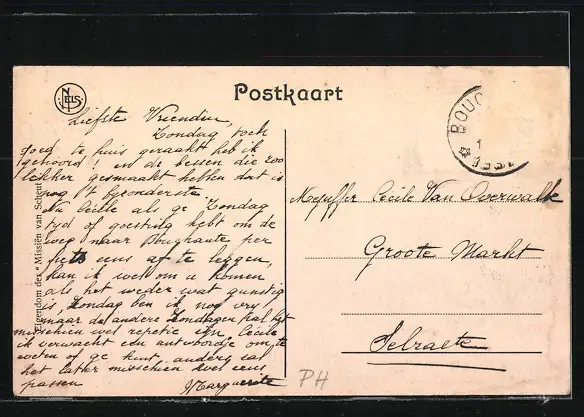 NELS
Postkaart
Liefste Vriendin,
Zondag toch
goed te huis geraakt heb ik
gehoord! en de bessen die zoo
lekker gesmaakt hebben dat is
nog 't byzonderste.
Nu Cecile als ge Zondag
tyd of goesting hebt om de
weg naar Boughaute per
fiets eens af te leggen,
kan ik wel om u komen
als het weder wat gunstig
is, Zondag ben ik nog vry
maar de andere Zondagen zal 't
misschien wel repetie zyn, Cecile
ik verwacht een antwoordje om te
weten of ge kunt anders zal
het later misschien wel eens
passen
Marguerite
Eigendom der "Missiën van Scheut"
BOUC
1
Mejuffer Cecile Van Overwalle
Groote Markt
Selzaete
PH